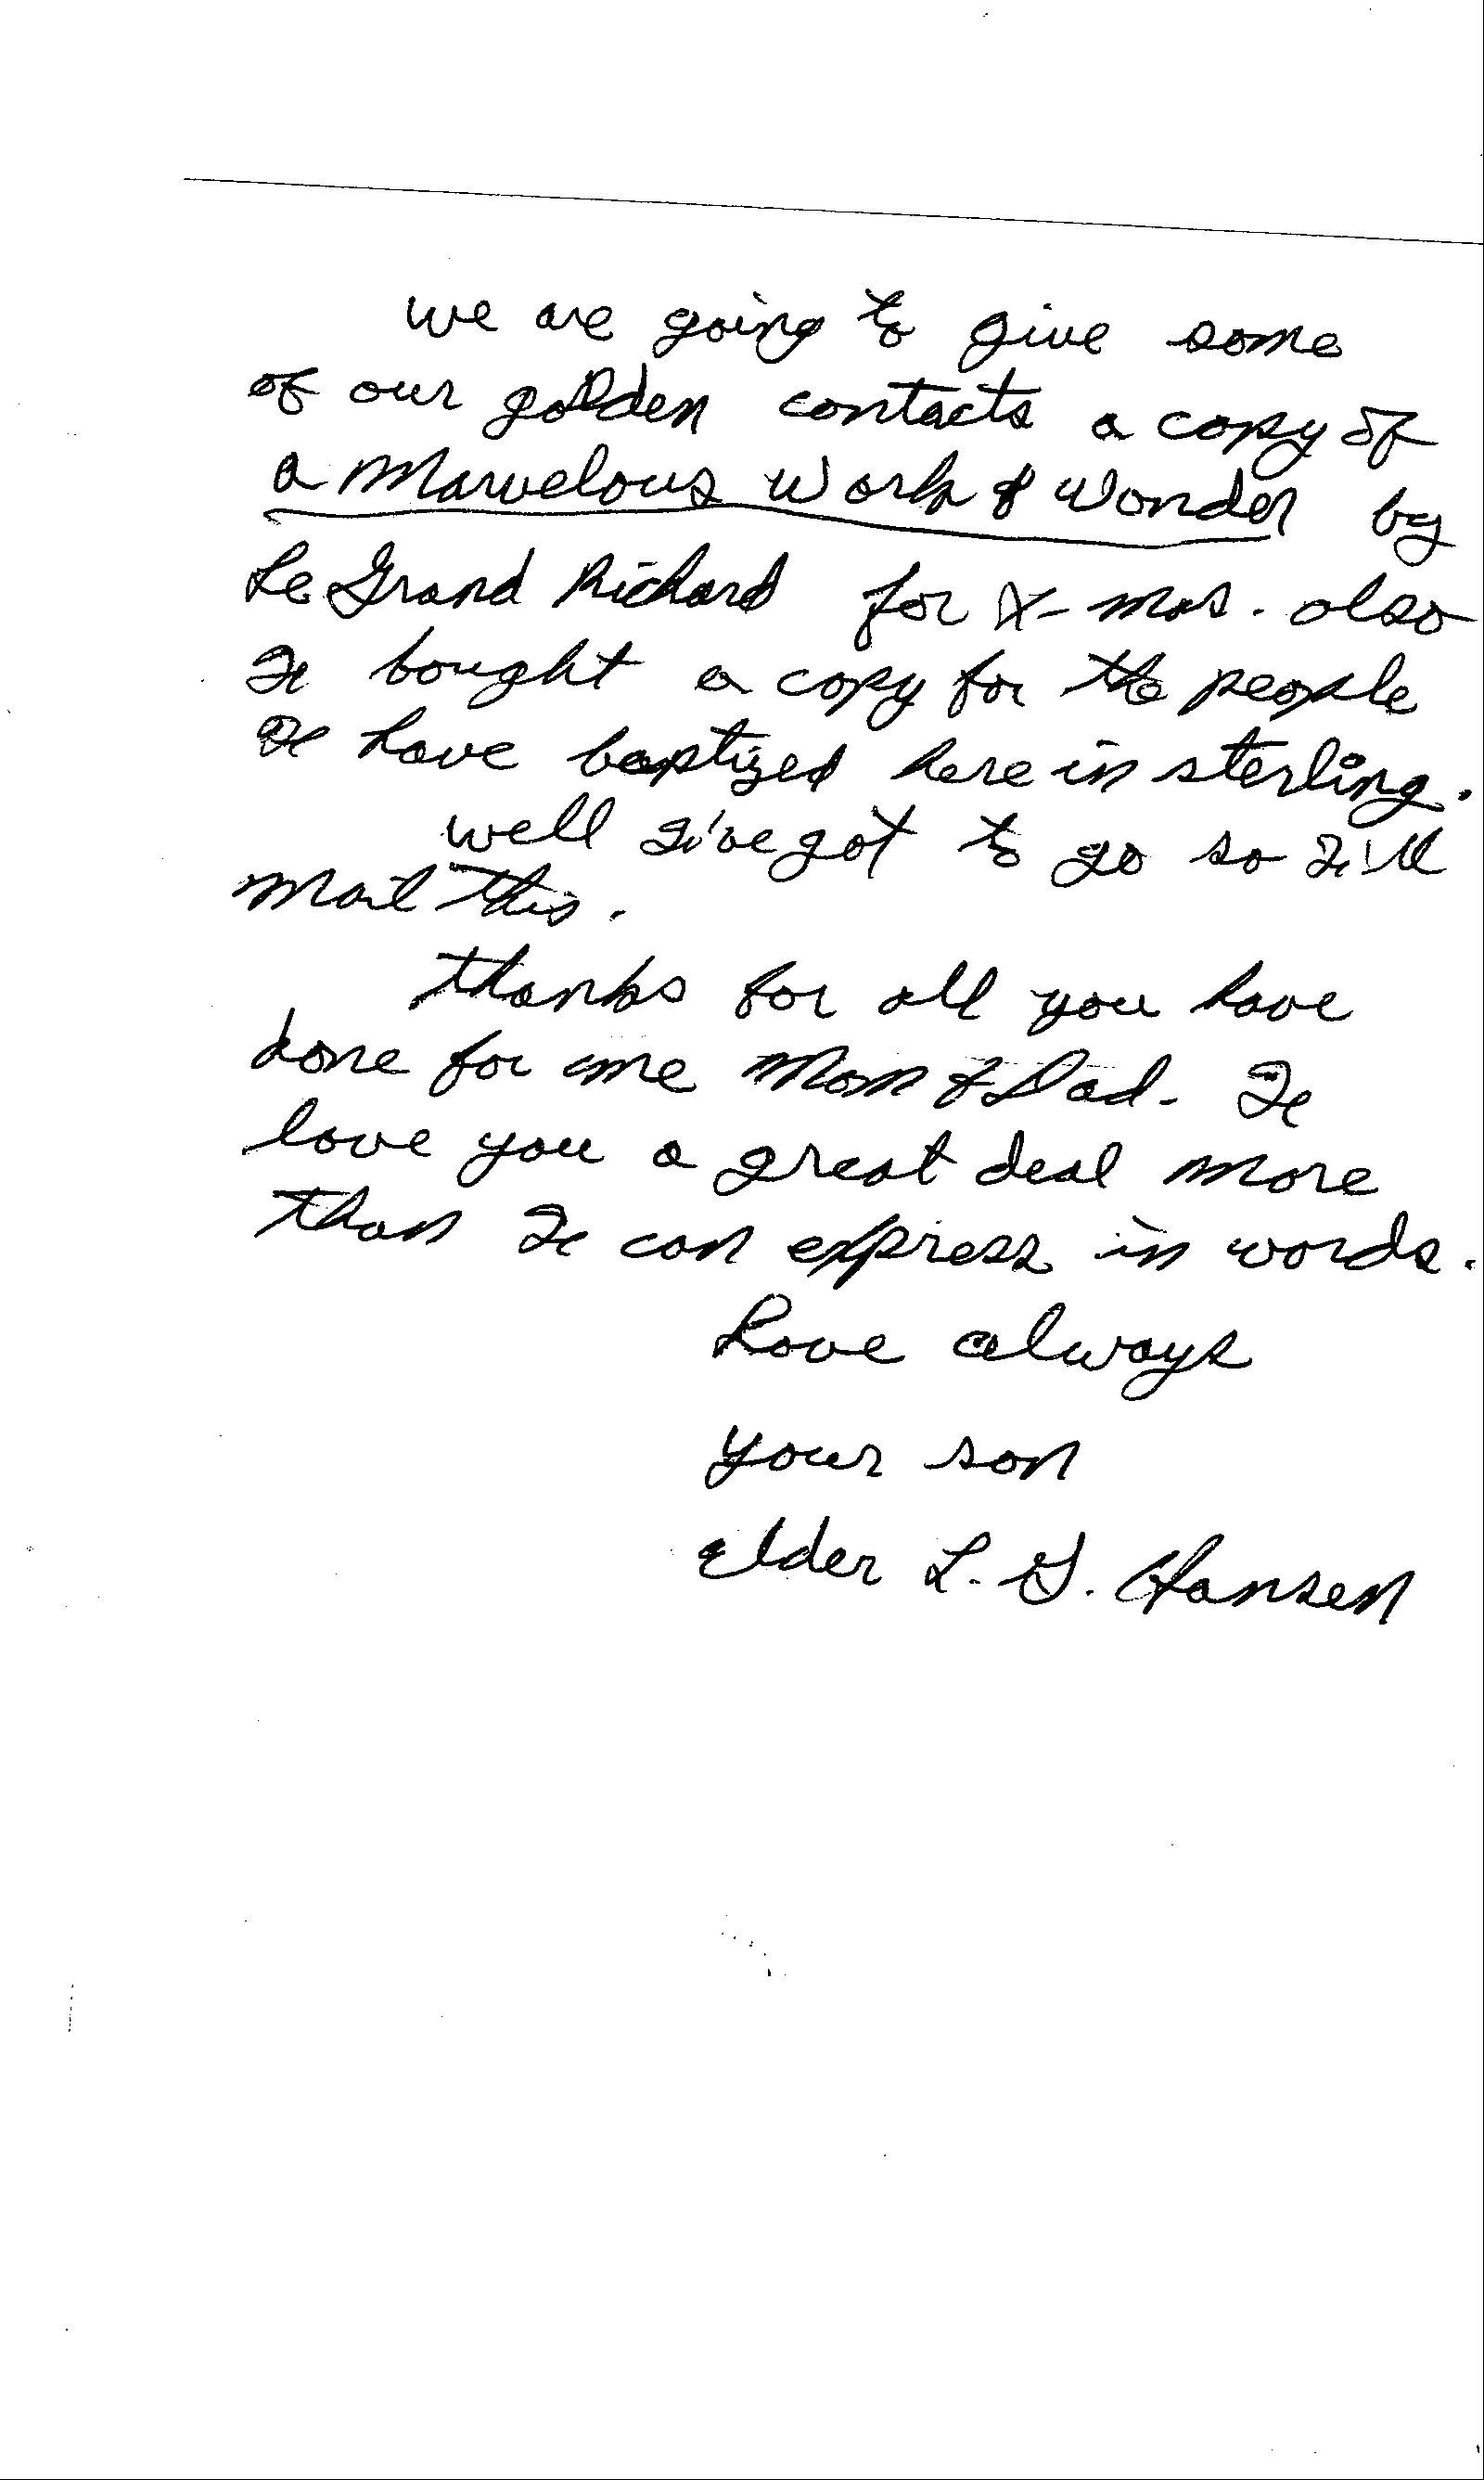 we are going to give some
of our golden contacts a copy of
a Marvelous Work & Wonder by
Le Grand Richard for X-mas. also
I bought a copy for the people
I have baptized here in sterling.
well I've got to go so I'll
mail this.
thanks for all you have
done for me Mom & Dad. I
love you a great deal more
than I can express in words.
Love always
your son
elder L. G. Hansen